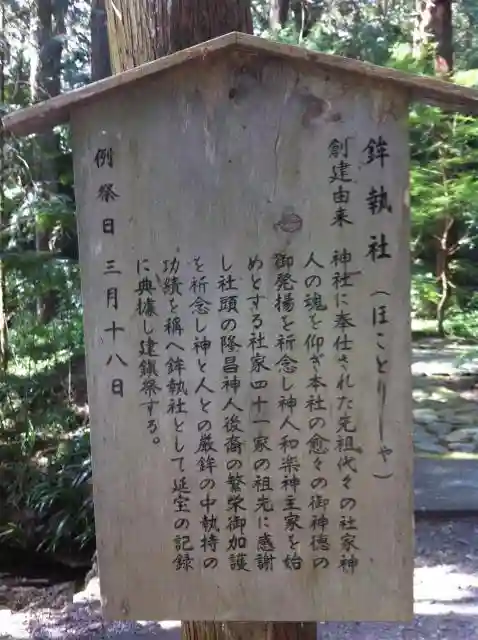 鉾執社（ほことりしや）
創建由来　神社に奉仕された先祖代々の社家神
人の魂を仰ぎ本社の愈々の御神徳の
御発揚を祈念し神人和楽神主家を始
めとする社家四十一家の祖先に感謝
し社頭の隆昌神人後裔の繁栄御加護
を祈念し神と人との厳鉾の中執持の
功績を称へ鉾執社として延宝の記録
に典據し建鎭祭する。
例祭日　三月十八日